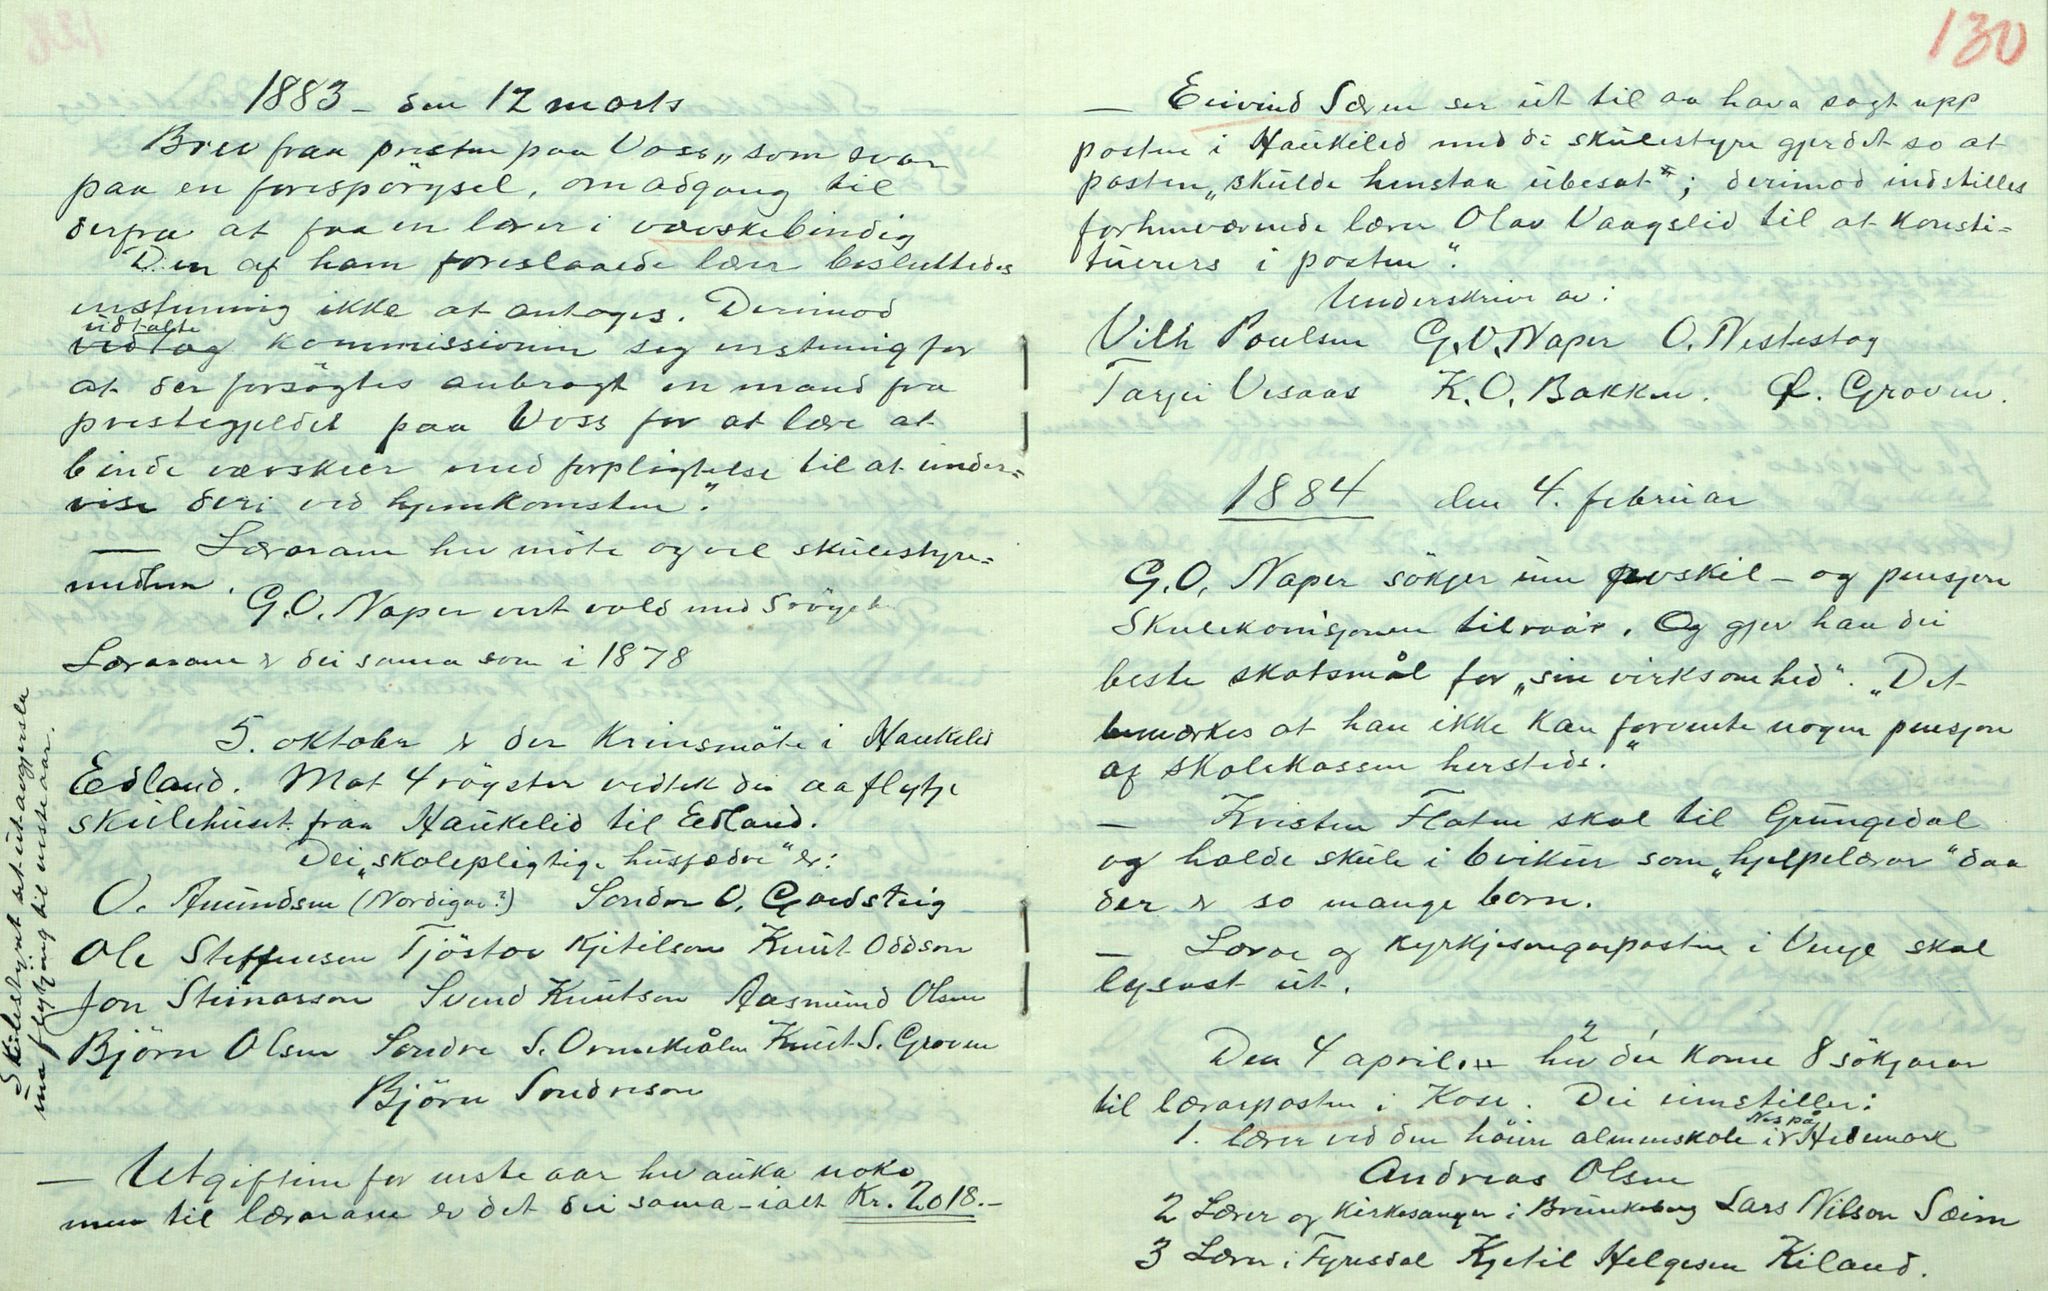 1883 – den 12 marts
Brev fraa presten paa Voss „som svar
paa en forespörgsel, om adgang til
derfra at faa en lærer i vævskebindig
"Den af ham foreslaaede lærer besluttedes
enstemmig ikke at antages. Derimod
udtalte
vedtog kommissionen seg enstemig for
at der forsögtes anbragt en mand fra
prestegjeldet paa Voss for at lære at
binde vævskeer med forpligtelse til at under=
vise deri ved hjemkomsten".
— Lærarane hev möte og vel skulestyre=
medlem.
G.O. Naper vert vald med 5 röyst
Lærarane er dei sama som i 1878
5. oktober er der Krinsmöte i Haukelid
Edland. Mot 4 röyster vedtek dei aa flytje
skulehuset fraa Haukelid til Edland.
Dei „skolepligtige husfædre" er:
O. Amundsen (Nordigar?) Sondre O. Gardsteig
Ole Steffensen Tjöstov Kjetilson Knut Oddson
Jon Steinarson Svend Knutson Aasmund Olsen
Björn Olsen Sondre S. Ormekåsen Knut S. Groven
Björn Sondreson
Skulestyret set utavgjersla
um flytjing til neste aar.
— Utgiftene for neste aar hev auka noko
men til lærarane er det dei sama – ialt Kr. 2018.–
130
— Eivind Særen ser ut til aa hava sagt upp
posten i Haukelid med di skulestyre gjerdet so at
posten „skulde henstaa ubesat"; derimod indstilles
forhenværende lærer Olav Vaagslid til at konsti=
tueres i posten".
Underskrive av:
Vilh Poulsen G.O. Naper O. Nestestog
Tarjei Vesaas K.O. Bakken. Ø. Groven.
1884 den 4. februar
G.O. Naper sökjer um avskil – og pensjon
Skulekomisjonen tilraar. Og gjev han dei
beste skatsmål for „sin virksomhed". „Det
bemærkes at han ikke kan forvente nogen pensjon
af skolekassen hersteds."
— Kristen Flaten skal til Grungedal
og halde skule i 6 vikur som „hjelpelærar" daa
der er so mange born.
— Lærar og kyrkjesongarposten i Vinje skal
lysast ut.
Den 4 april hev dei kome 8 sökjarar
til lærarposten i Kose. Dei innstiller:
1. lærer ved den höiere almenskole i Nes på Hedemark
Andreas Olsen
2 Lærer og kirkesanger i Brunkeberg Lars Nilson Sæim
3 Lærer i Fyresdal Kjetil Helgesen Kiland.